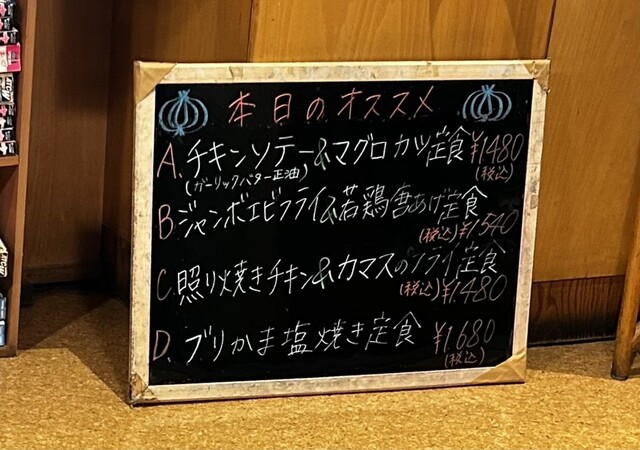 本日のオススメ
A. チキンソテー&マグロカツ定食 ¥1480
(ガーリックバター正油) (税込)
B. ジャンボエビフライ&若鶏唐あげ定食
(税込) ¥1540
C. 照り焼きチキン&カマスのフライ定食
(税込) ¥1480
D. ブリかま塩焼き定食 ¥1680
(税込)